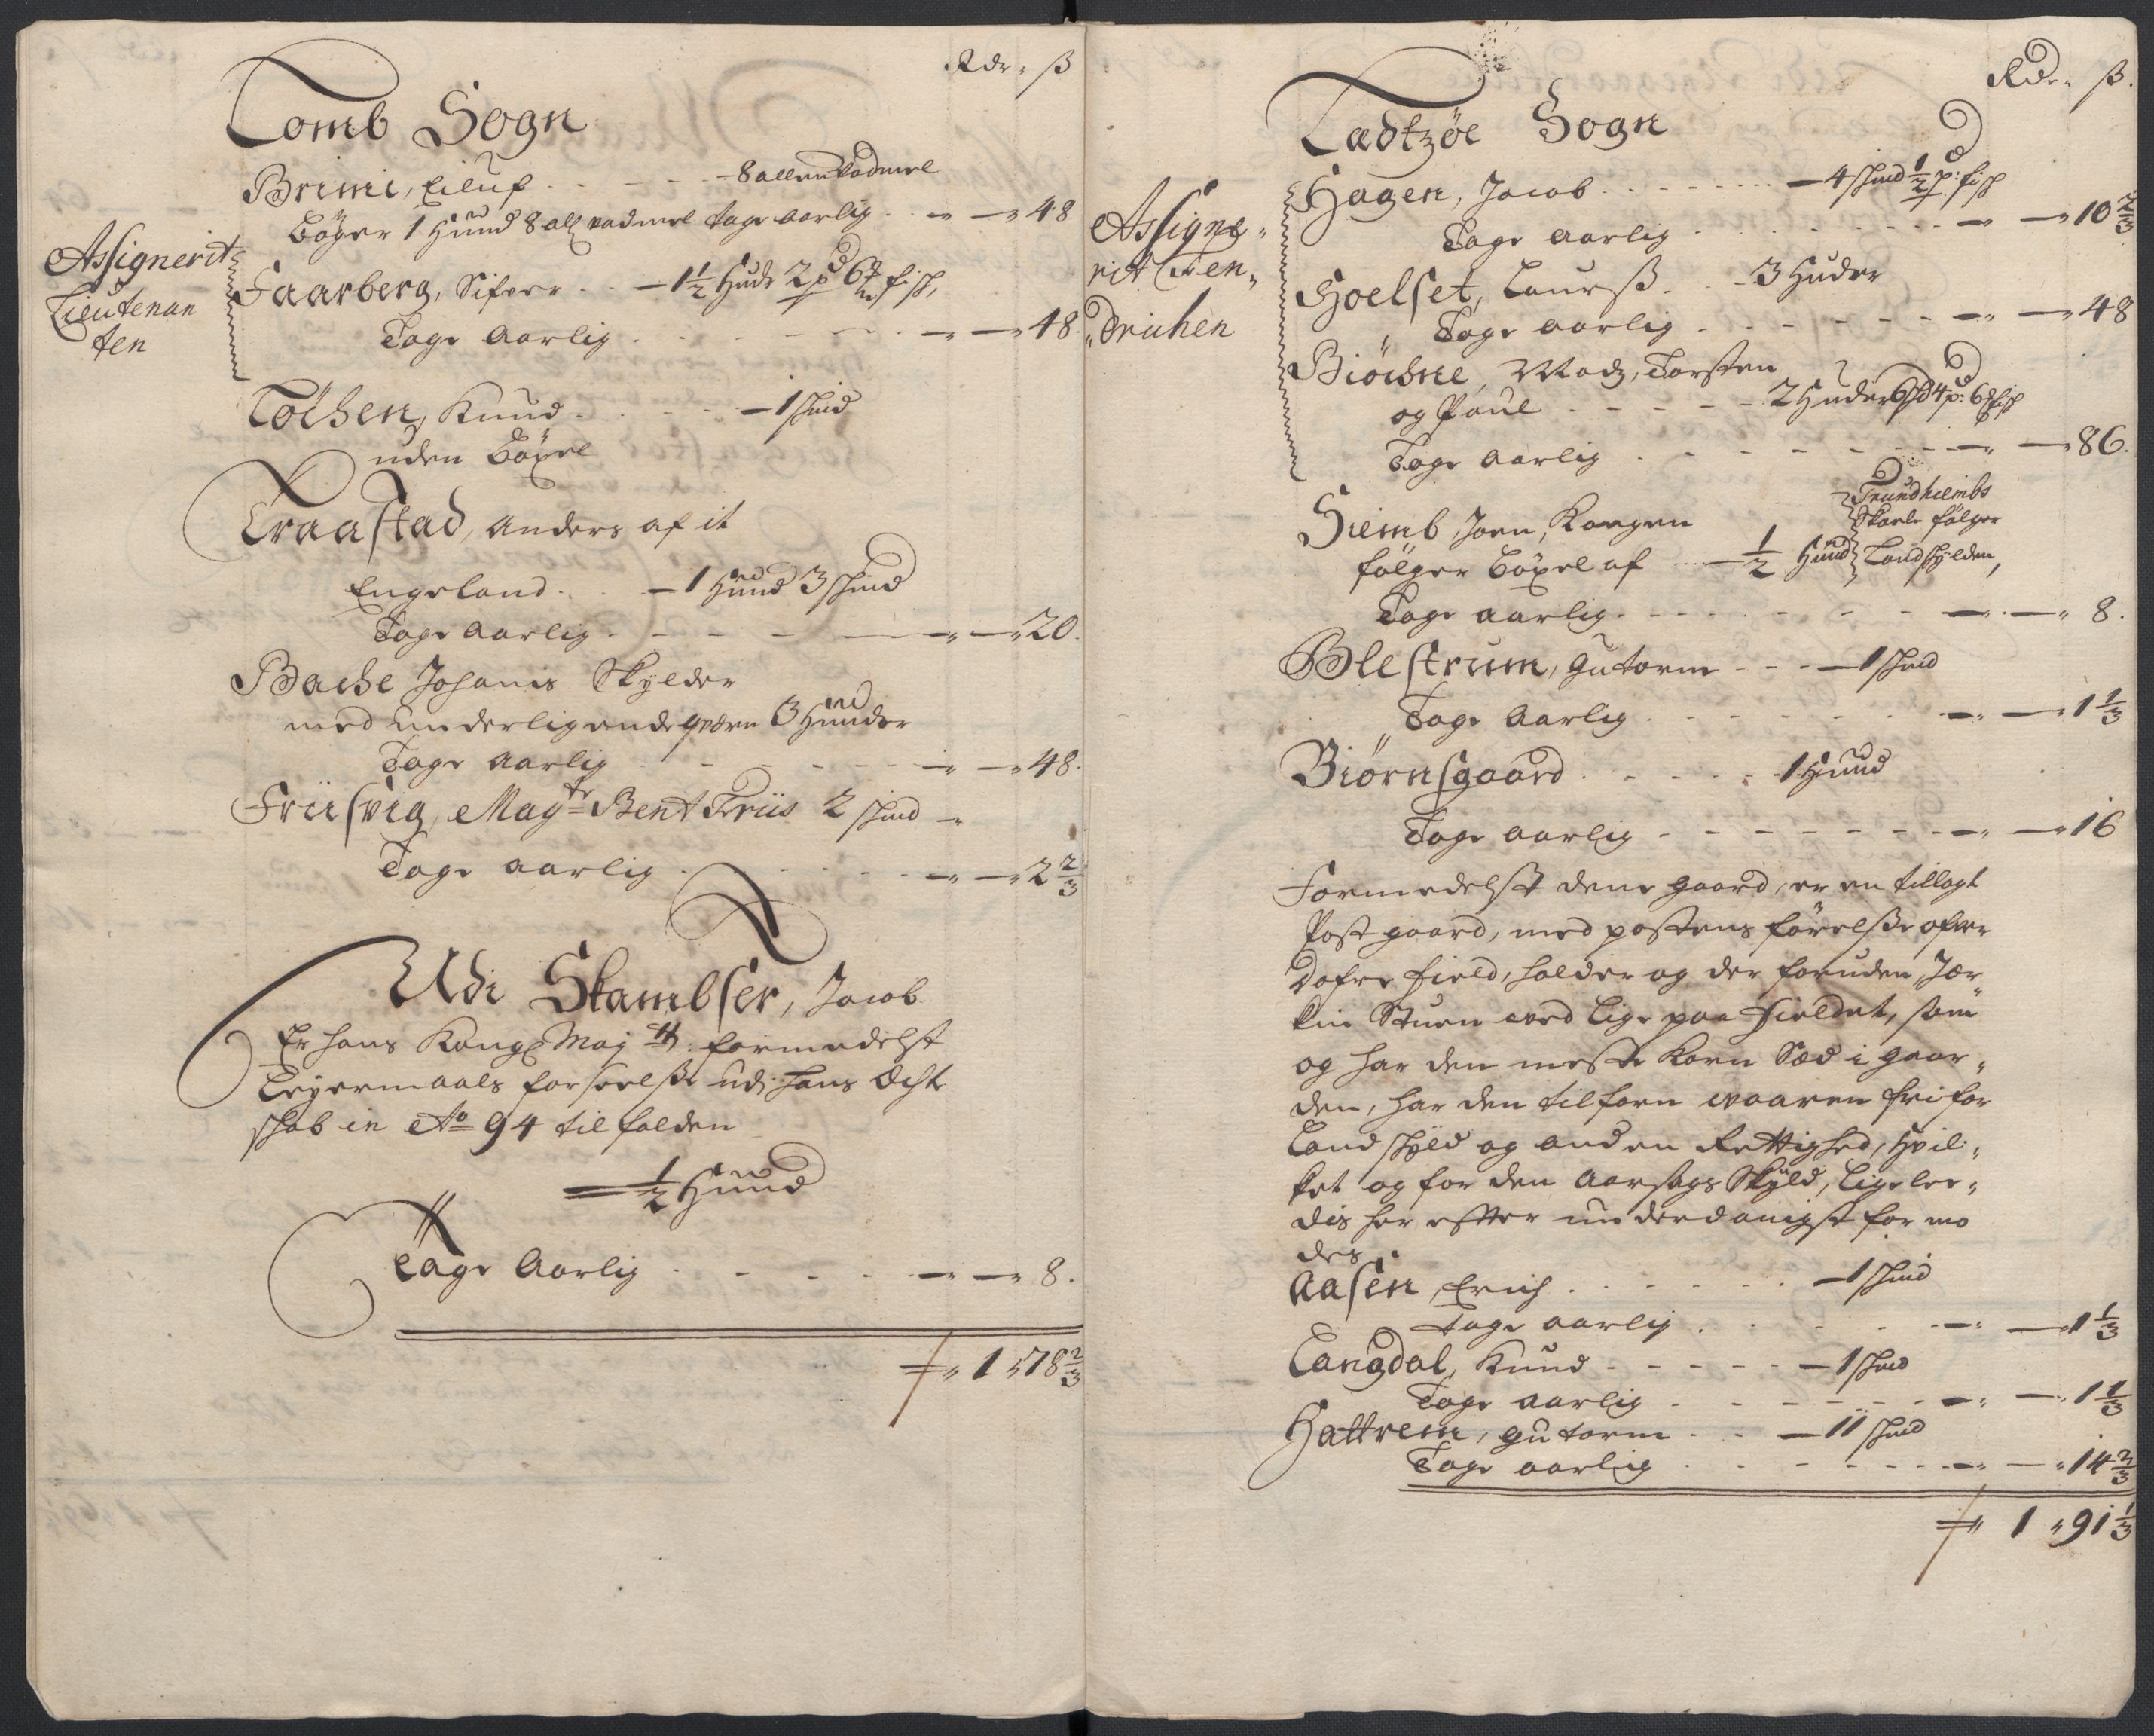 Rdr. ß
Lomb Sogn
Brimi, Eiluf - - - 8 allen Vadmel
Böger 1 Hund 8 all vadmel tage aarlig - - 48
Assignerit
Lieutenan
ten
Faarberg, Sifver - - 1½ Hude 2 p 6 fisk,
Tage Aarlig - - 48.
Lochen, Knud - - 1 skind
uden Böxel
Traastad, Anders af it
Engeland - - 1 Hund 3 skind
Tage Aarlig - - 20.
Bache Johanis Skylder
med underligende qværn 3 Hunder
Tage Aarlig - - 48.
Friisvig, Mag Bent Friis 2 skind
Tage aarlig - - 2⅔
Udi Skambser, Jacob
Er hans Kongl Maj tt: formedelst
Leyermaals forseelße udi hans Echte
skab in Ao 94 tilfalden
½ Hund
Tage Aarlig - - 8.
1 " 78⅔
Rdr. ß.
Ladtzöe Sogn
Assigne-
rit
Hagen, Jacob - - 4 skind ½ p: fisk
Tage aarlig - - 10⅔
Hoelset, Laurß - - 3 Huder
Tage aarlig - - 48
Biöchne, Madz, Torsten
og Poul - - 2 Huder 6 4 p: 6 fisk
Tage Aarlig - - 86.
Hiemb, Joen, Kongen
følger Böxel af - - ½ Hund
Trundhiembs
Skoele følger
Landskylden,
Tage aarlig - - 8.
Blestrum, Gutorm - - 1 skind
Tage Aarlig - - 1⅓
Biörnsgaard - - 1 Hund
Tage aarlig - - 16
Formedelst dene gaard, er en tillagt
Post gaard, med postens förelße ofver
Dofre field, holder og der foruden Jer
kin Stuen ved lige paa Fieldet, som
og har den meste Korn Sæd i gaar-
den, har den tilforn vaaren fri for
Landskyld og anden Rettighed, hvil-
ket og for den Aarsags Skyld, ligelee-
dis her efter underdanigst formo
des
Aasen, Erich - - 1 skind
Tage aarlig - - 1⅓
Langdal, Knud - - 1 skind
Tage aarlig - - 1⅓
Hattrem, Gutorm - - 11 skind
Tage aarlig - - 14⅔
1 " 91⅓